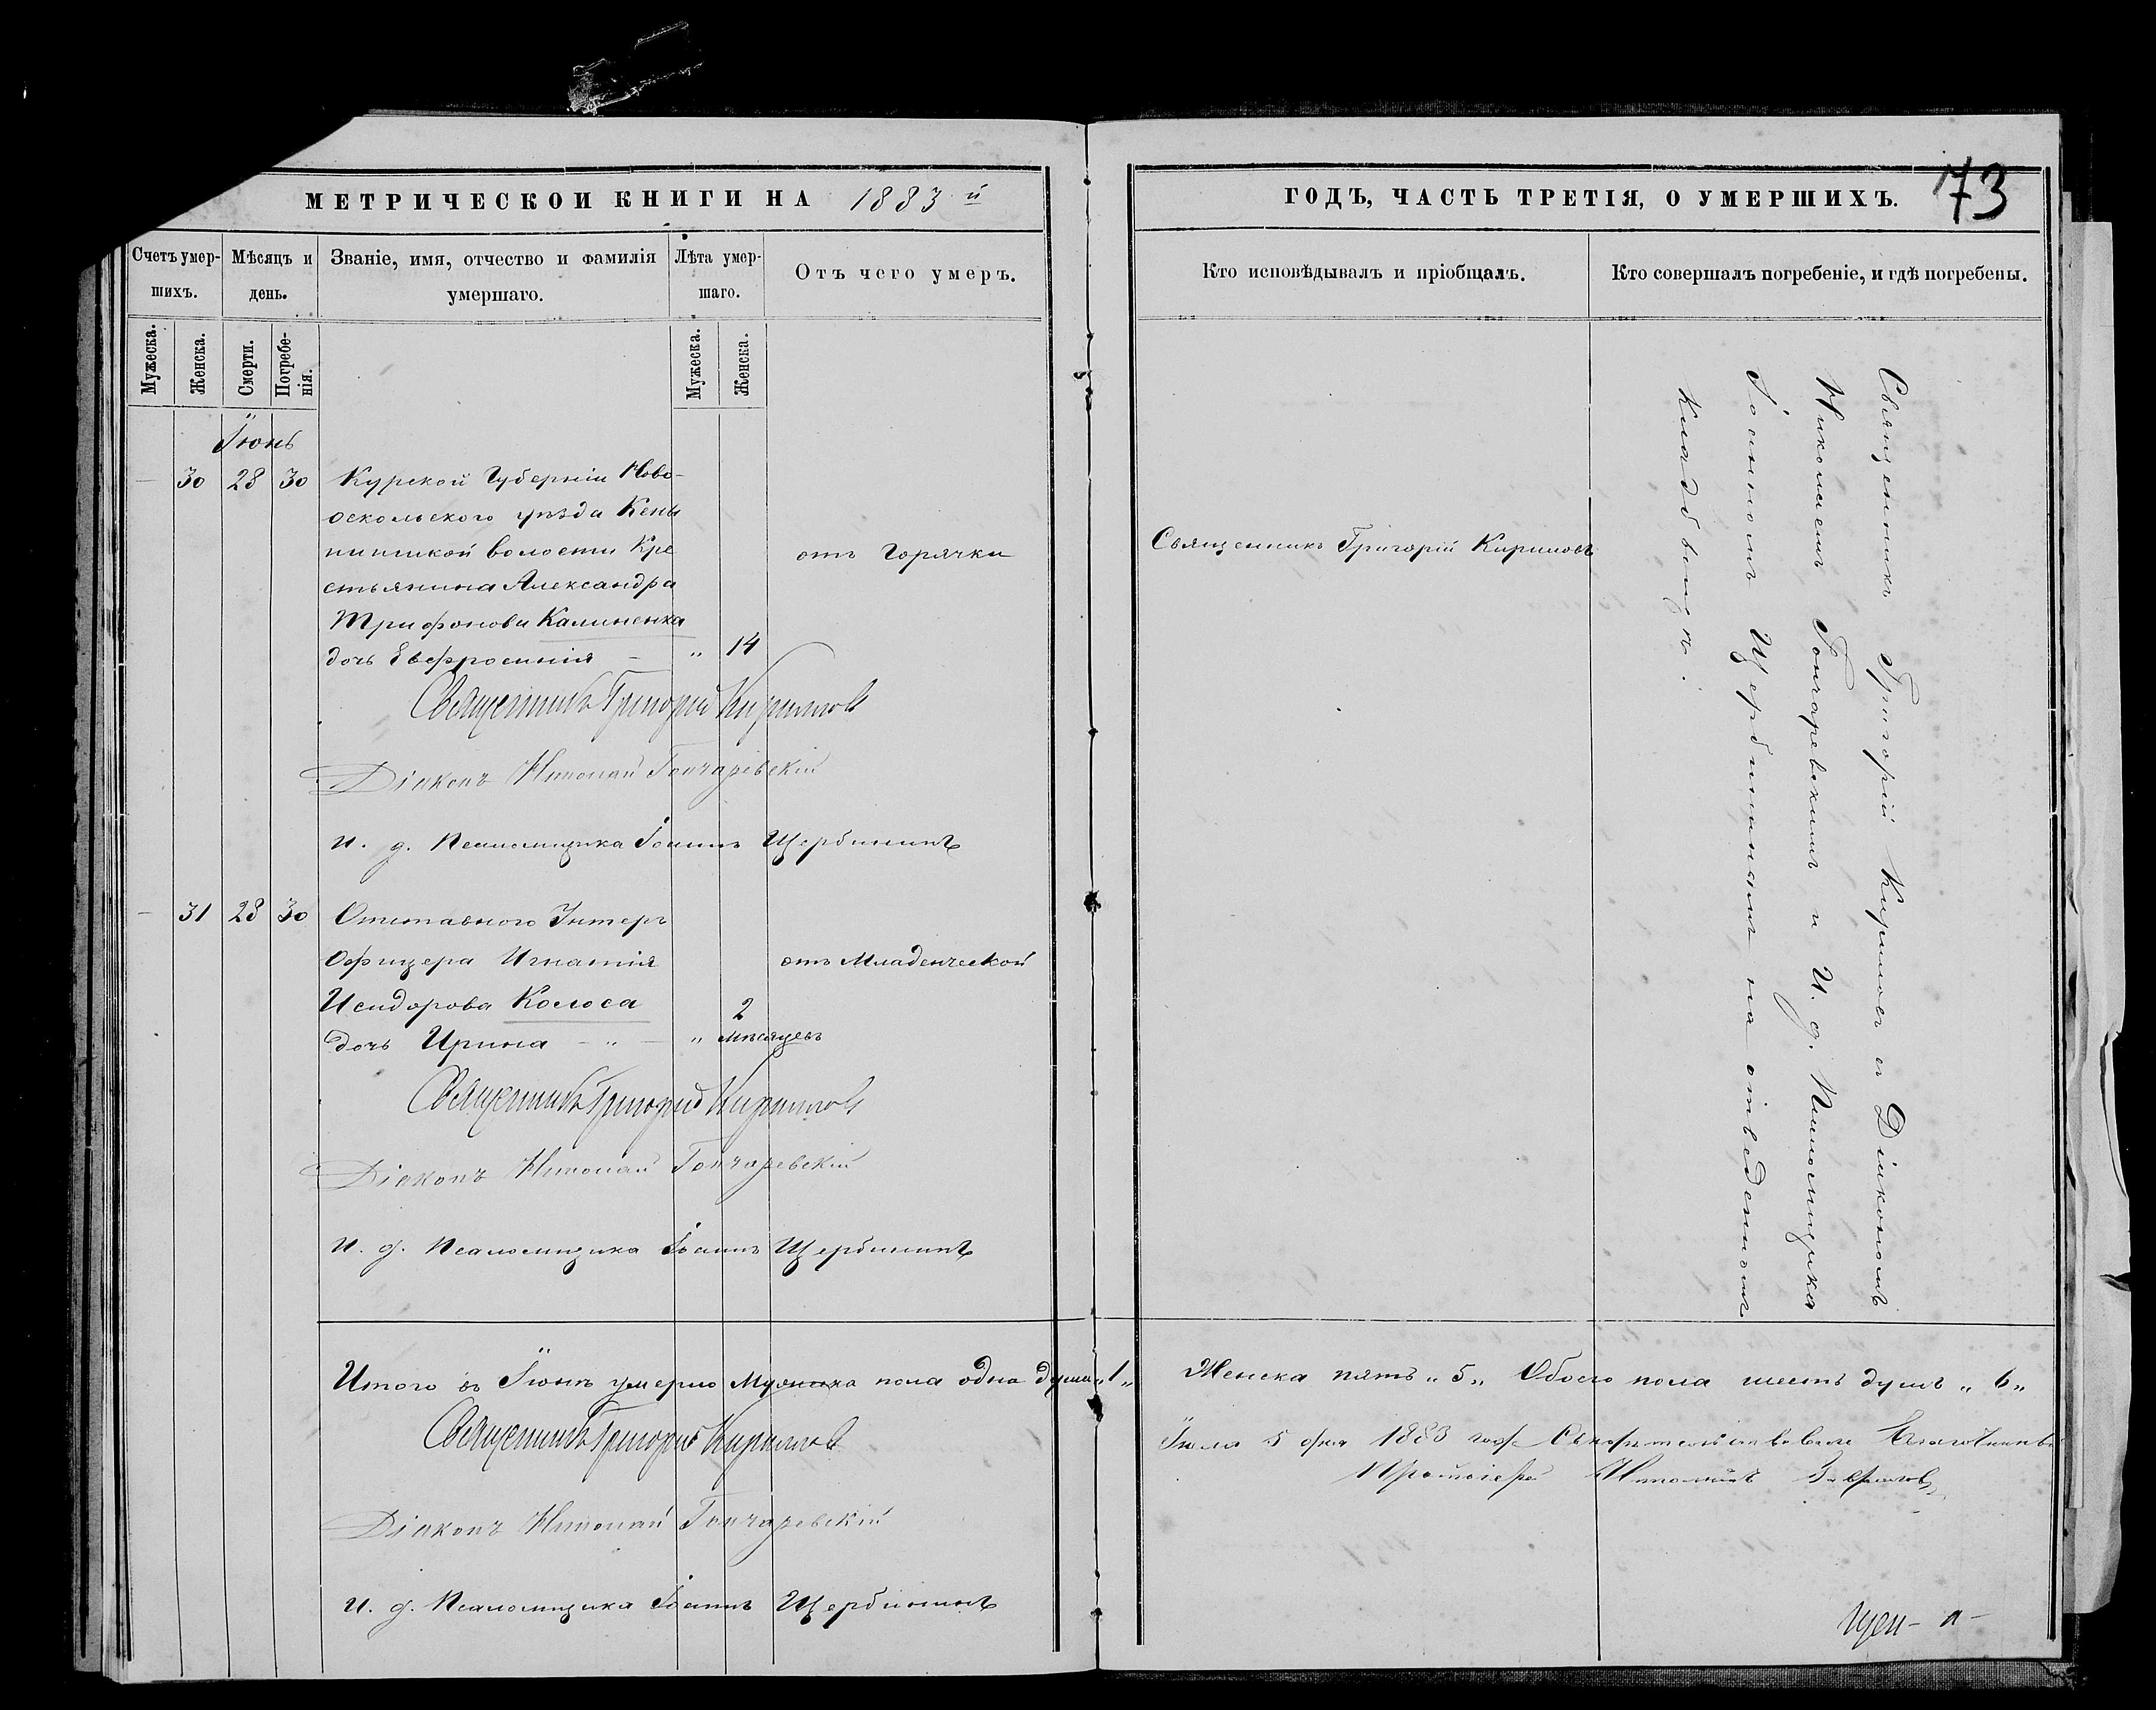 МЕТРИЧЕСКОЙ КНИГИ НА 1883 й
Счетъ умер-
шихъ.
Мѣсяцъ и
день.
Званіе, имя, отчество и фамилія
умершаго.
Лѣта умер-
шаго.
Отъ чего умеръ.
Мужеска.
Женска.
Смерти.
Погребе-
нія.
Мужеска.
Женска.
Іюнь
30 28 30 Курской Губерніи Ново-
оскольского уѣзда
волости Кре
стьянина Александра
Трифонова Калиненка
дочь Евфросинія — „ 14
отъ Горячки
Священникъ Григорій Кириловъ
Діаконъ Николай Гончаревскій
И. д. Псаломщика Іоаннъ Щербининъ
31 28 30 Отставного Унтеръ
Офицера Игнатія
Исидорова Колоса
дочь Ирина — „ — „ 2
мѣсяцевъ
отъ Младенческой
Священникъ Григорій Кириловъ
Діаконъ Николай Гончаревскій
И. д. Псаломщика Іоаннъ Щербининъ
Итого въ Іюнѣ умерло Мужеска пола одна душа „1„
Священникъ Григорій Кириловъ
Діаконъ Николай Гончаревскій
И. д. Псаломщика Іоаннъ Щербининъ
ГОДЪ, ЧАСТЬ ТРЕТІЯ, О УМЕРШИХЪ.
73
Кто исповѣдывалъ и пріобщалъ.
Кто совершалъ погребеніе, и гдѣ погребены.
Священникъ Григорій Кириловъ
Священникъ Григорій Кириловъ съ Діакономъ
Николаемъ Гончаревскимъ и И. д. Псаломщика
Іоанномъ Щербининымъ на отведенномъ
кладбищѣ.
Женска пять „5„ Обоего пола шесть душъ „6„
Іюля 5 дня 1883 года Свидѣтельствовалъ Благочинный
Протоіерей